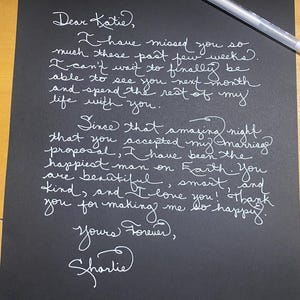 Dear Katie,
I have missed you so
much these past few weeks.
I can't wait to finally be
able to see you next month
and spend the rest of my
life with you.
Since that amazing night
that you accepted my marriage
proposal, I have been the
happiest man on Earth. You
are beautiful, smart, and
kind, and I love you! Thank
you for making me so happy.
Yours Forever,